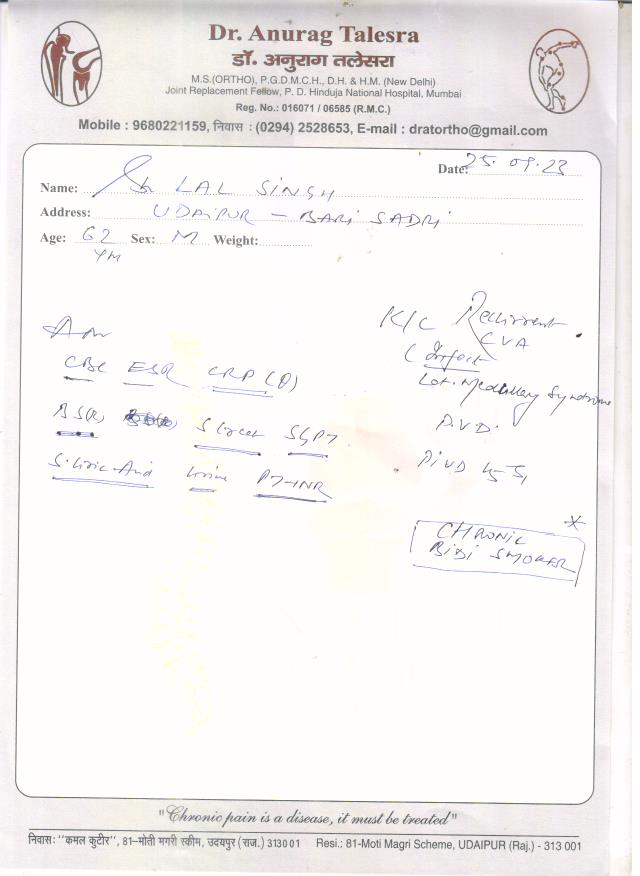 Dr. Anurag Talesra
डॉ. अनुराग तलेसरा
M.S.(ORTHO), P.G.D.M.C.H., D.H. & H.M. (New Delhi)
Joint Replacement Fellow, P. D. Hinduja National Hospital, Mumbai
Reg. No.: 016071 / 06585 (R.M.C.)
Mobile : 9680221159, निवास : (0294) 2528653, E-mail : dratortho@gmail.com
Date: 25.09.23
Name: Sh LAL SINGH
Address: UDAIPUR - BARI SADRI
Age: 62 Sex: M Weight:
K/C Recurrent
CVA
(Infarct
Lat. Medullary Syndrome
P.V.D.
PIVD L5 S1
Adv
CBC ESR CRP (Q)
BSR S Creat SGPT
S. Uric Acid Urine PT-INR
*
CHRONIC
BIDI SMOKER
"Chronic pain is a disease, it must be treated"
निवास: "कमल कुटीर", 81-मोती मगरी स्कीम, उदयपुर (राज.) 313001 Resi.: 81-Moti Magri Scheme, UDAIPUR (Raj.) - 313 001